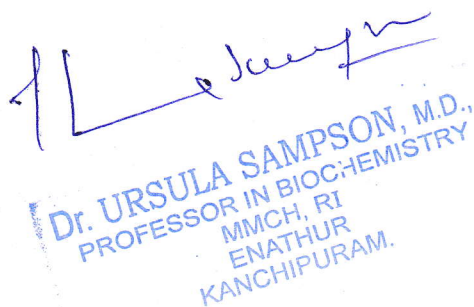 Dr. URSULA SAMPSON, M.D.,
PROFESSOR IN BIOCHEMISTRY
MMCH, RI
ENATHUR
KANCHIPURAM.